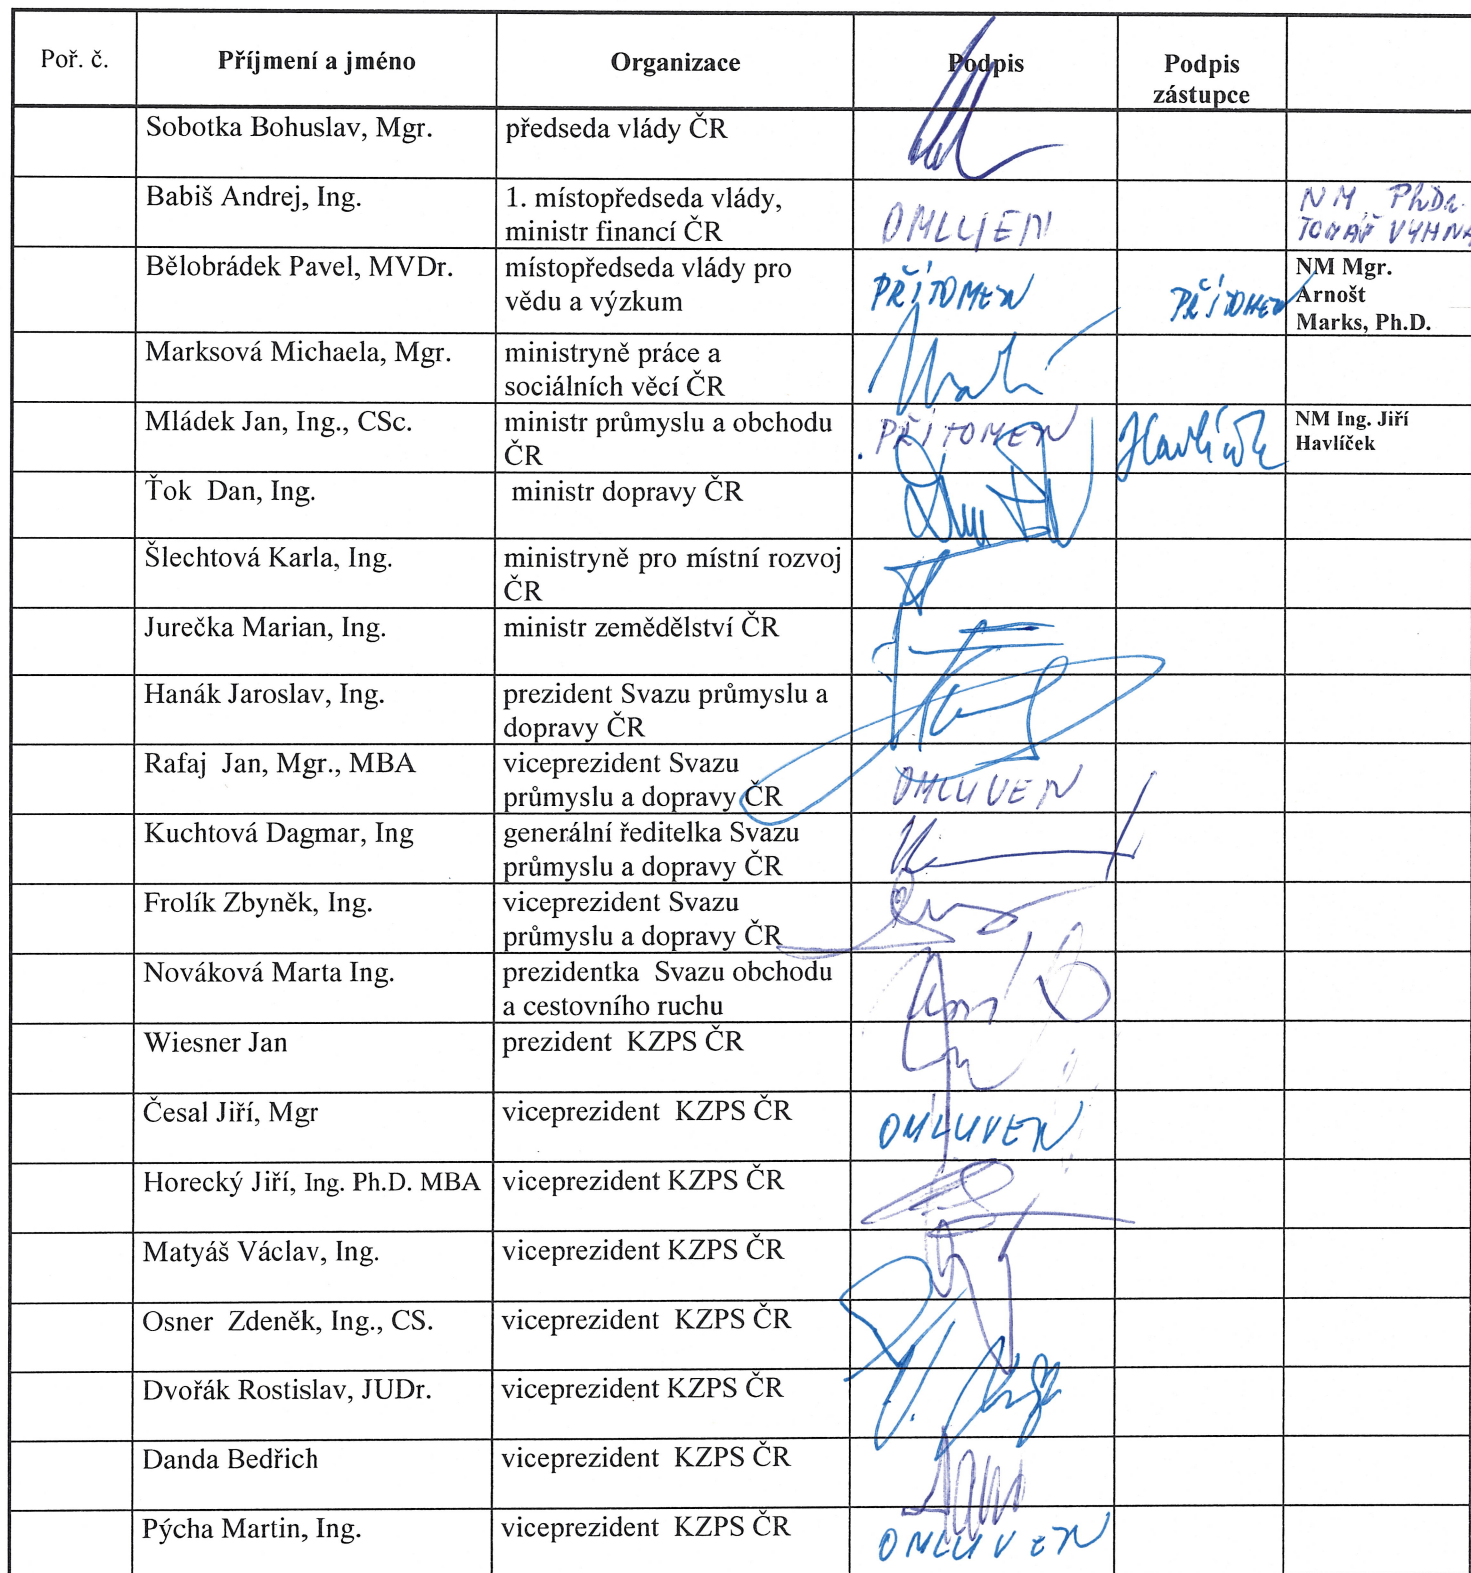 Poř. č. Příjmení a jméno Organizace Podpis Podpis
zástupce
Sobotka Bohuslav, Mgr. předseda vlády ČR
Babiš Andrej, Ing. 1. místopředseda vlády,
ministr financí ČR OMLUVEN NM PhDr.
TOMÁŠ
Bělobrádek Pavel, MVDr. místopředseda vlády pro
vědu a výzkum PŘÍTOMEN PŘÍTOMEN NM Mgr.
Arnošt
Marks, Ph.D.
Marksová Michaela, Mgr. ministryně práce a
sociálních věcí ČR
Mládek Jan, Ing., CSc. ministr průmyslu a obchodu
ČR PŘÍTOMEN Havlíček NM Ing. Jiří
Havlíček
Ťok Dan, Ing. ministr dopravy ČR
Šlechtová Karla, Ing. ministryně pro místní rozvoj
ČR
Jurečka Marian, Ing. ministr zemědělství ČR
Hanák Jaroslav, Ing. prezident Svazu průmyslu a
dopravy ČR
Rafaj Jan, Mgr., MBA viceprezident Svazu
průmyslu a dopravy ČR OMLUVEN
Kuchtová Dagmar, Ing generální ředitelka Svazu
průmyslu a dopravy ČR
Frolík Zbyněk, Ing. viceprezident Svazu
průmyslu a dopravy ČR
Nováková Marta Ing. prezidentka Svazu obchodu
a cestovního ruchu
Wiesner Jan prezident KZPS ČR
Česal Jiří, Mgr viceprezident KZPS ČR OMLUVEN
Horecký Jiří, Ing. Ph.D. MBA viceprezident KZPS ČR
Matyáš Václav, Ing. viceprezident KZPS ČR
Osner Zdeněk, Ing., CS. viceprezident KZPS ČR
Dvořák Rostislav, JUDr. viceprezident KZPS ČR
Danda Bedřich viceprezident KZPS ČR
Pýcha Martin, Ing. viceprezident KZPS ČR OMLUVEN